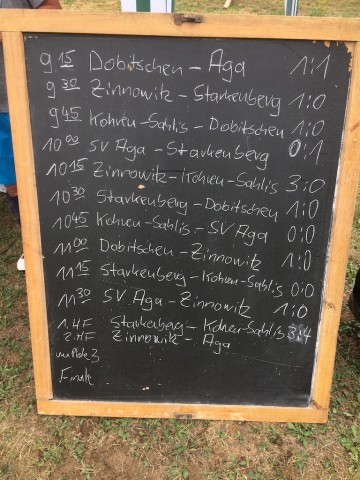 9 15 Dobitschen - Aga 1:1
9 30 Zinnowitz - Starkenberg 1:0
9 45 Kohren-Sahlis - Dobitschen 1:0
10 00 SV Aga - Starkenberg 0:1
10 15 Zinnowitz - Kohren-Sahlis 3:0
10 30 Starkenberg - Dobitschen 1:0
10 45 Kohren-Sahlis - SV Aga 0:0
11 00 Dobitschen - Zinnowitz 1:0
11 15 Starkenberg - Kohren-Sahlis 0:0
11 30 SV Aga - Zinnowitz 1:0
1. HF Starkenberg - Kohren-Sahlis 3:4
2. HF Zinnowitz - Aga
um Platz 3
Finale